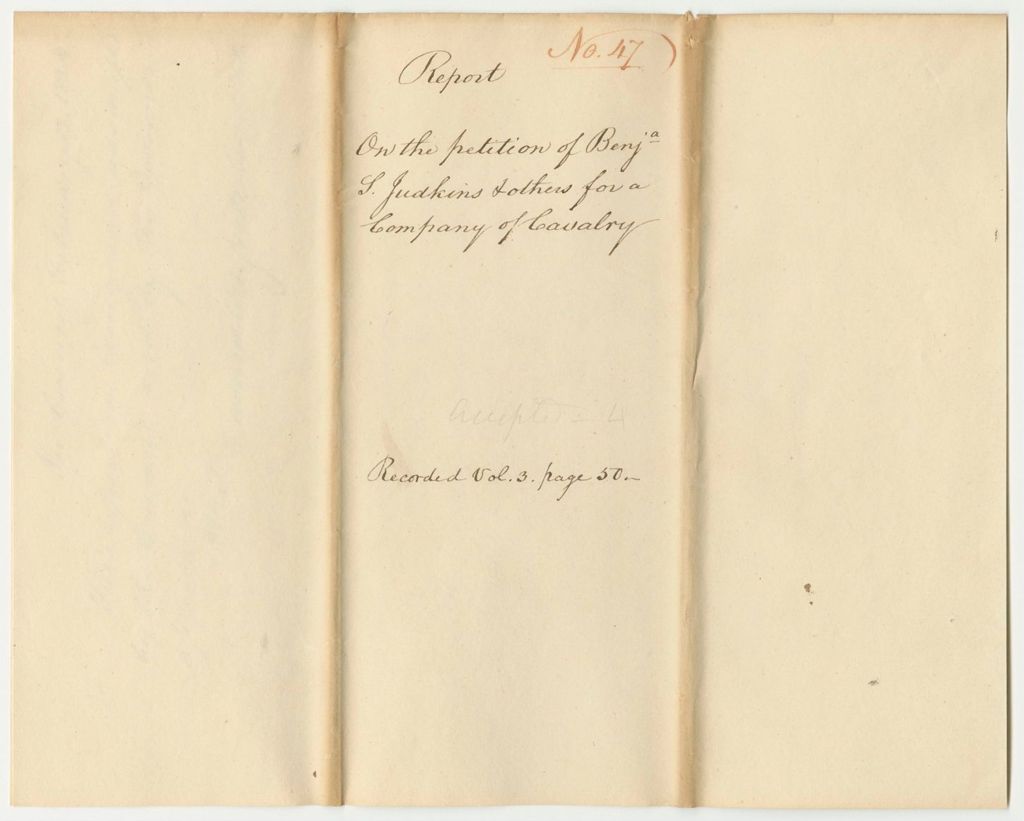 No. 47
Report
On the petition of Benjª
S. Judkins & others for a
Company of Cavalry
Recorded Vol. 3. page 50.–